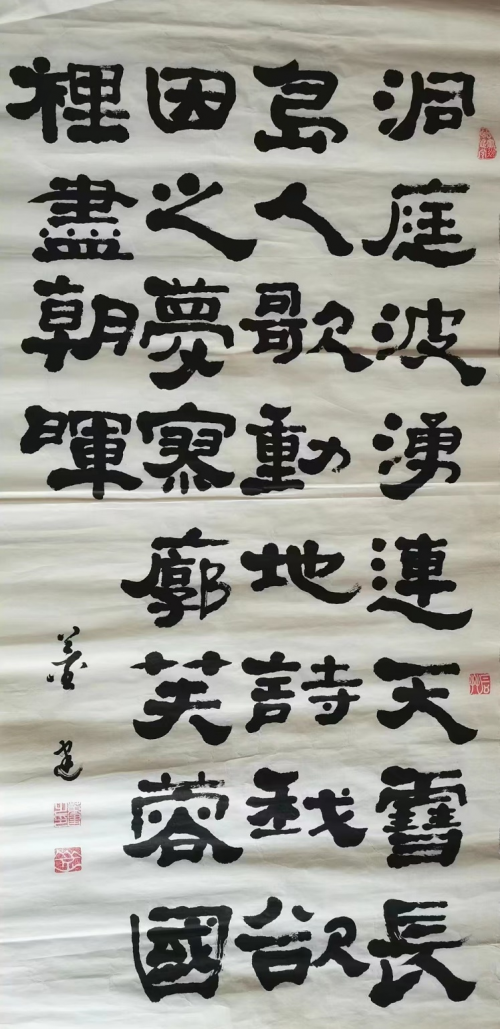 洞庭波湧連天雪長
島人歌動地詩我欲
因之夢寥廓芙蓉國
裡盡朝暉